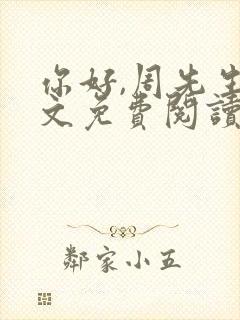 你好,周先生
文免費閱讀
鄰家小五